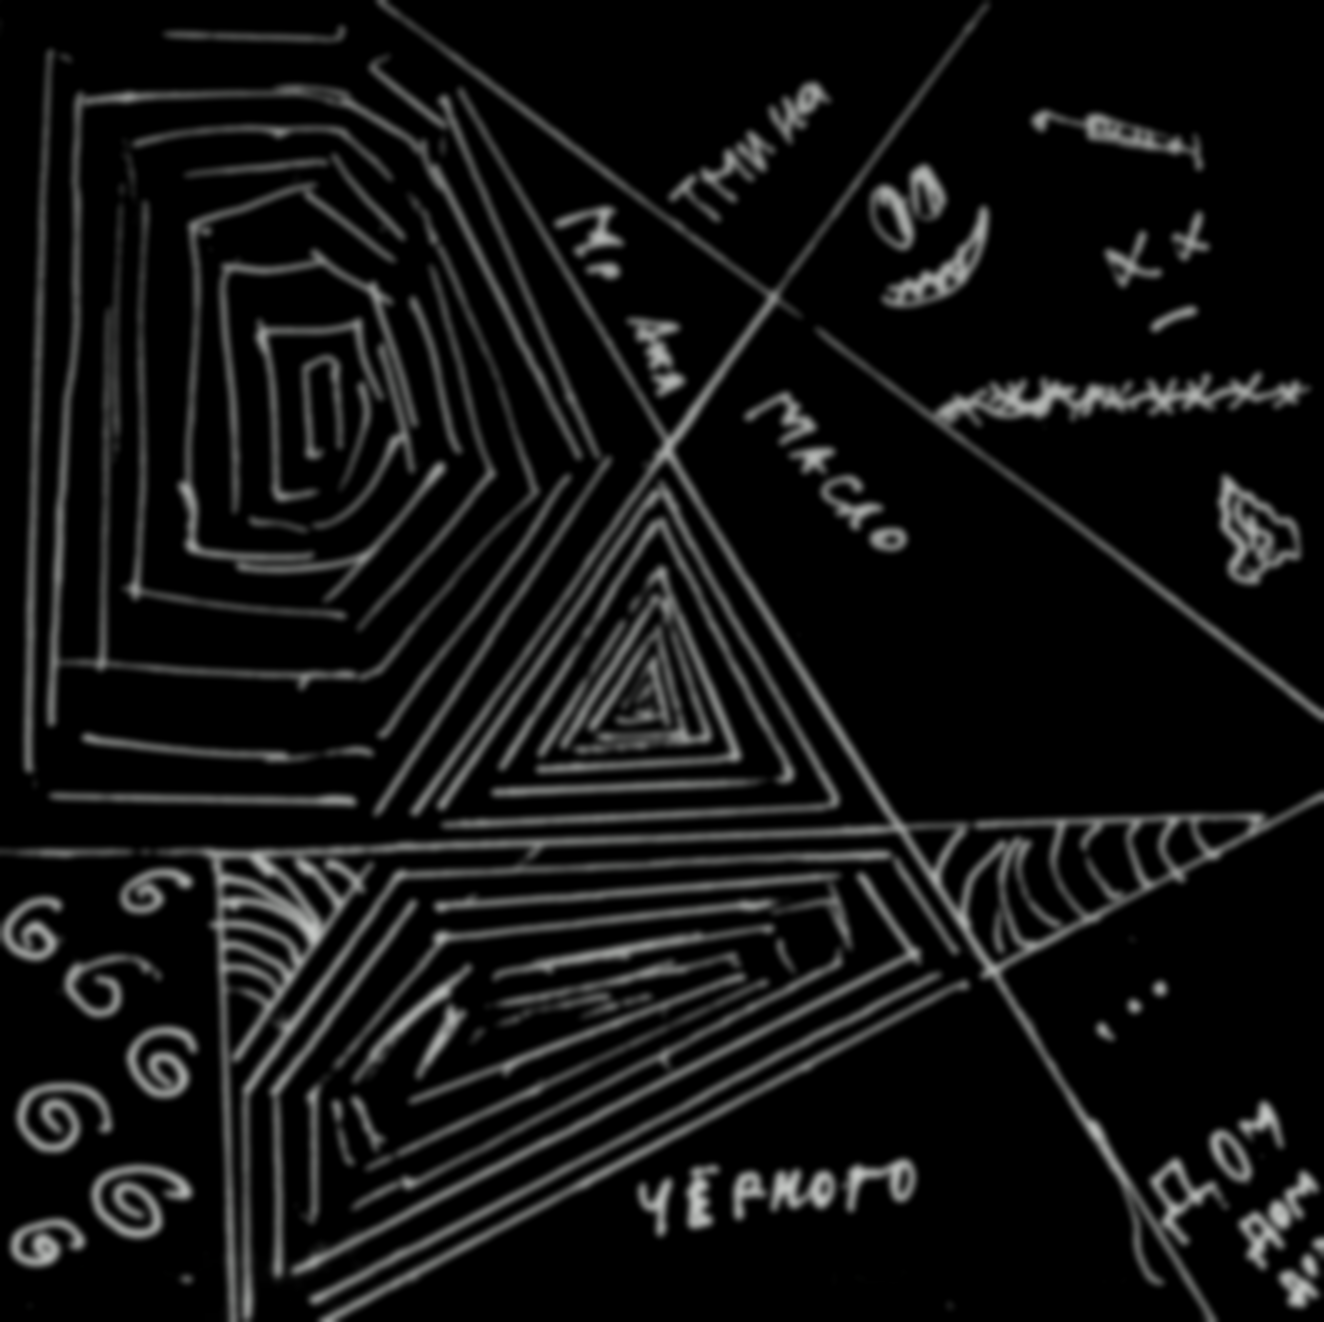 ТМИНА
Мр
МАСЛО
ЧЁРНОГО
ДОМ
ДОМ